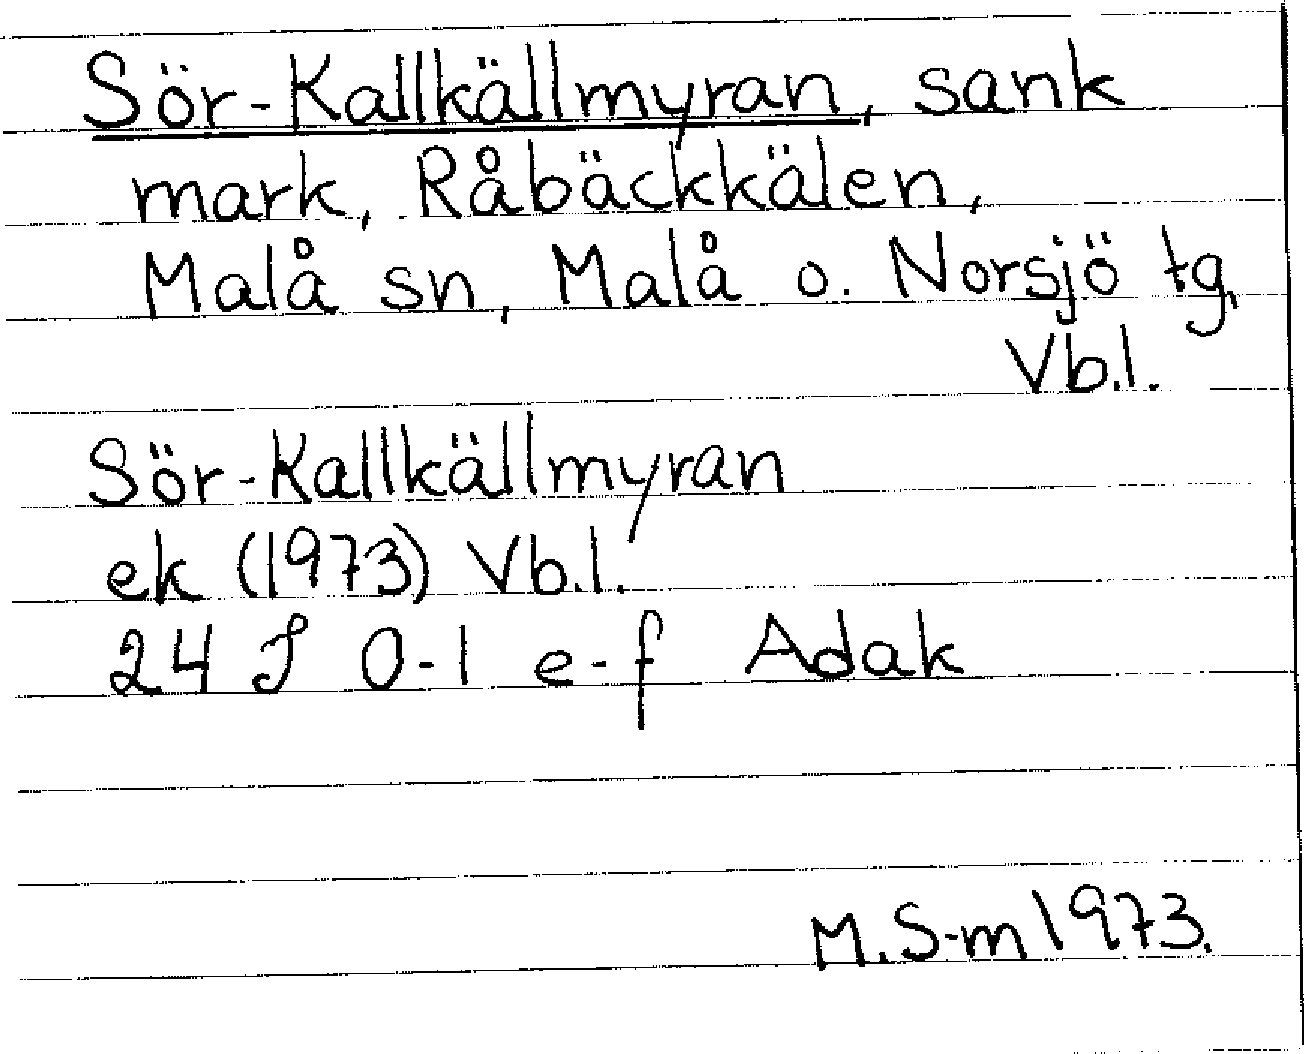 Sör-Kallkällmyran, sank
mark, Råbäckkälen,
Malå sn, Malå o. Norsjö tg,
Vb.l.
Sör-Kallkällmyran
ek (1973) Vb.l.
24 J 0-1 e-f Adak
M.S-m 1973.